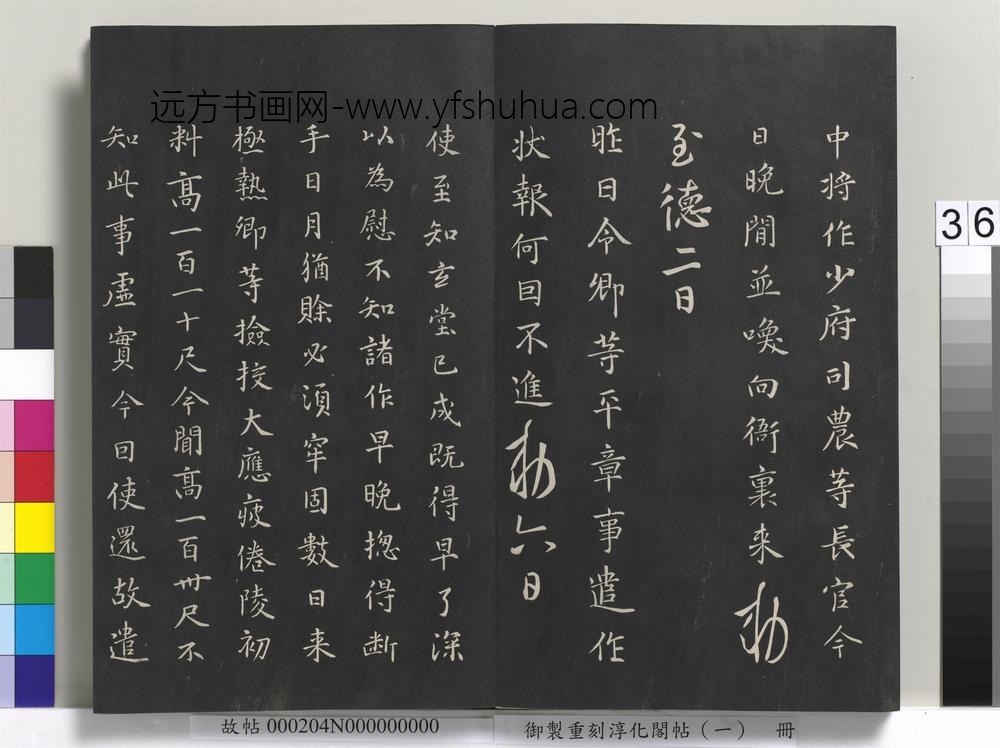 远方书画网-www.yfshuhua.com
中將作少府司農等長官今
日晚間並喚向衙裏来勅
至德二日
昨日令卿等平章事遣作
状報何因不進勅六日
使至知玄堂已成既得早了深
以為慰不知諸作早晚揔得断
手日月猶賒必須牢固數日来
極熱卿等撿挍大應疲倦陵初
料高一百一十尺今聞高一百卅尺不
知此事虛實今回使還故遣
36
故帖 000204N000000000
御製重刻淳化閣帖（一） 冊